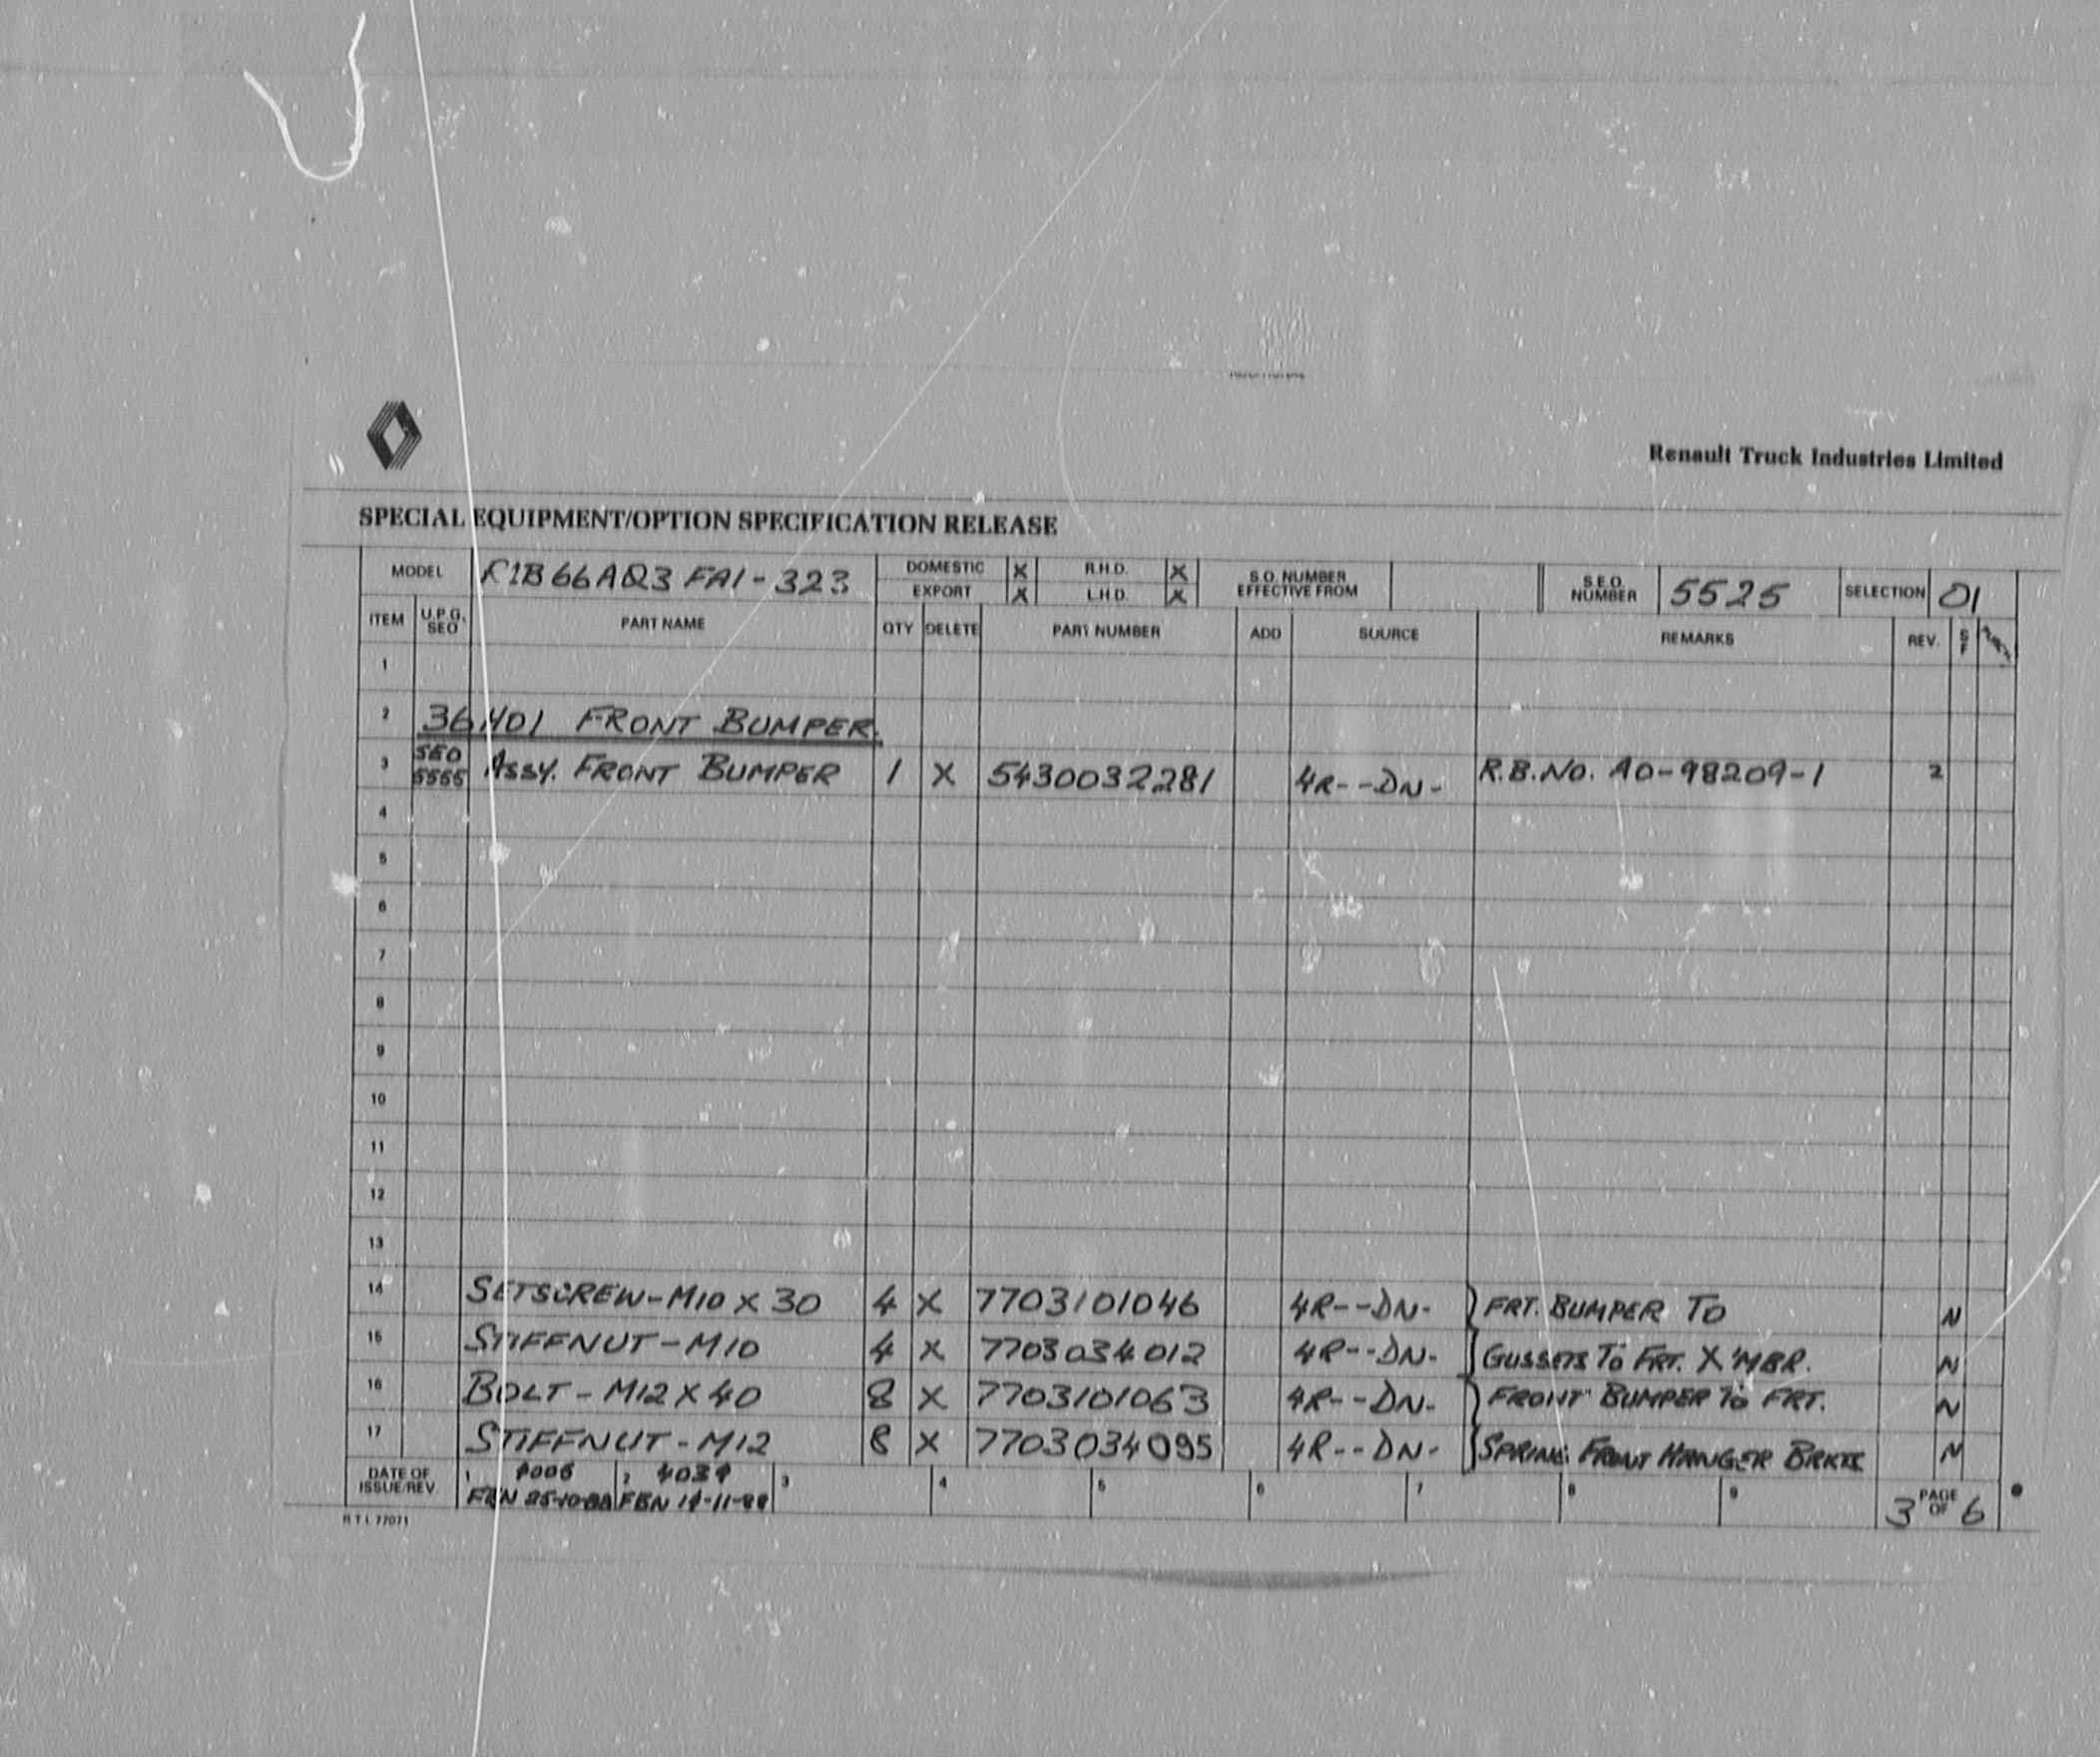 Renault Truck Industries Limited
SPECIAL EQUIPMENT/OPTION SPECIFICATION RELEASE
MODEL R1B66AQ3 FA1-323 DOMESTIC X R.H.D. X S.O. NUMBER EFFECTIVE FROM S.E.O. NUMBER 5525 SELECTION 01
EXPORT X L.H.D. X
ITEM U.P.G. SEO PART NAME QTY DELETE PART NUMBER ADD SOURCE REMARKS REV. S F
1
2 36401 FRONT BUMPER.
3 SEO 5555 ASSY. FRONT BUMPER 1 X 5430032281 4R--DN- R.B.NO. AO-98209-1 2
4
5
6
7
8
9
10
11
12
13
14 SETSCREW-M10 X 30 4 X 7703101046 4R--DN- } FRT. BUMPER TO N
15 STIFFNUT-M10 4 X 7703034012 4R--DN- GUSSETS TO FRT. X'MBR. N
16 BOLT-M12 X 40 8 X 7703101063 4R--DN- } FRONT BUMPER TO FRT. N
17 STIFFNUT-M12 8 X 7703034095 4R--DN- SPRING FRONT HANGER BRKTS N
DATE OF ISSUE/REV. 1 2 3 4 5 6 7 8 9 3 PAGE OF 6
R T L 77071